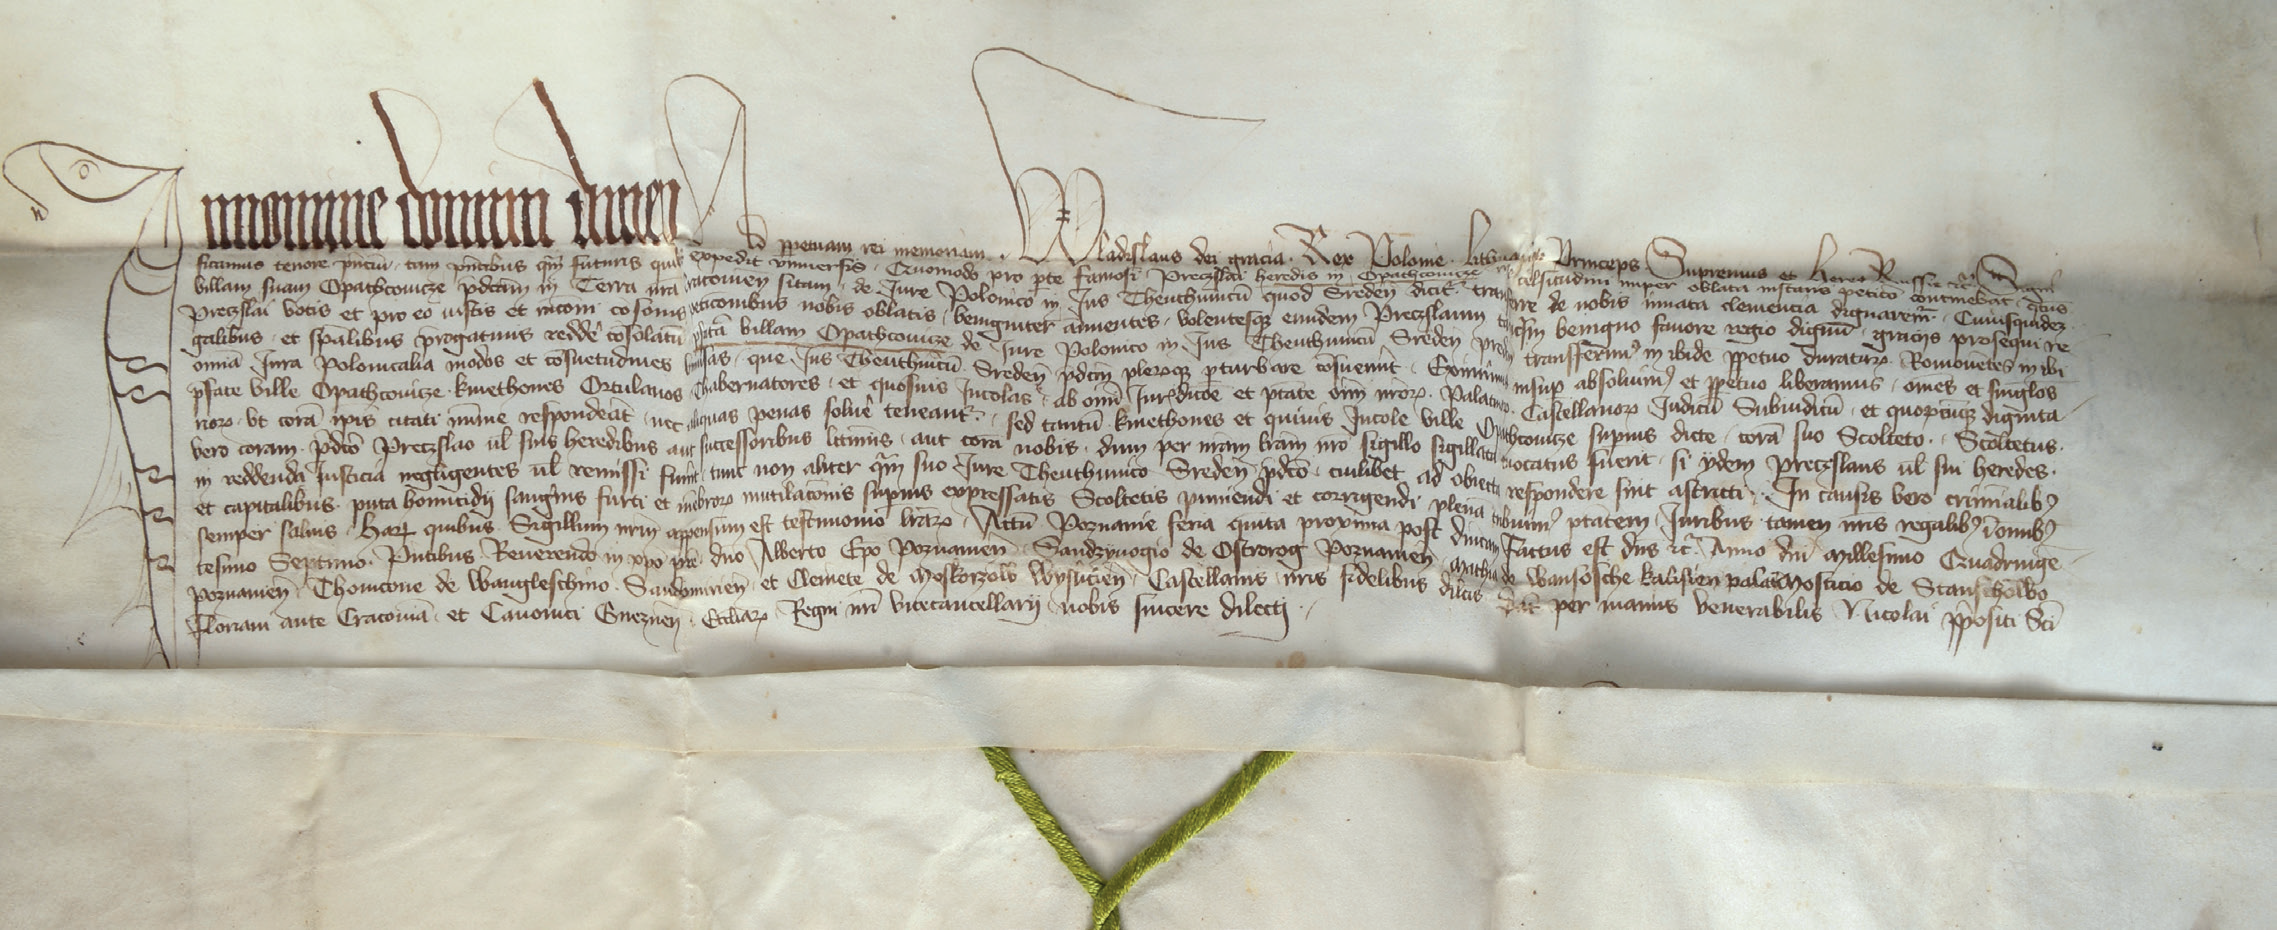 In nomine domini Amen Ad ppetuam rei memoriam. Wladislaus dei gracia Rex Polonie Lithuanieqz Princeps Supremus et heres Russie etc
ficamus tenore pntium tam pntibus qm futuris quibus expedit vniuersis Quomodo pro pte famosi Preczslai heredis in Opathcouicze celsitudini nuper oblata instans peticio continebat
villam suam Opathcouicze pdictam in Terra nra sitam de Jure Polonico in Jus Theuthunicu quod Sreden dicitr transferre de nobis innata clemencia dignaremr Cuiusquidez
Preczslai votis et pro eo iustis et peticionibus nobis oblatis benigniter annuentes volentesqz eundem Preczslaum benigno fauore regio dignu gracijs prosequi re
galibus et spalibus progatiuis redde cosolatu pfata villam Opathcouicze de Jure Polonico in Jus Theuthunicu Sreden transferim9 in ibide ppetuo duratur Remouetes in ibi
omnia Jura Polonicalia modos et cosuetudines vniusas que Jus Theuthunicu Sreden pdictu pleruqz pturbare cosueuert Eximim9 insup absoluim9 et ppetuo liberamus omes et singlos
pfate ville Opathcouicze kmethones Ortulanos Thabernatores et quosuis Incolas ab omi Jurisdictoe et ptate oim nror Palatinor Castellanor Judicu Subiudicu et quorucuqz dignita
rior vt cora ipis citati mime respondeat nec aliquas penas solue teneantr sed tantu kmethones et quiuis Incole ville Opathcouicze supius dicte cora suo Scolteto Scoltetus
vero coram pdco Preczslao ul suis heredibus aut successoribus ltimis aut cora nobis dum per nram lram nro sigillo sigillata euocatus fuerit si ydem Preczslaus ul sui heredes
in reddenda Justicia negligentes ul remissi fuerit tunc non aliter qm suo Jure Theuthunico Sreden pdco cuilibet ad obiecta respondere sint astricti In causis vero criminalib9
et capitalibus puta homicidij sangwis furti et mebror mutilacionis supius expressatis Scoltetis puniendi et corrigendi plena tribuim9 ptatem Juribus tamen nris regalib9 omib9
semper saluis Har quibus Sigillum nrm appensum est testimonio lrar Actu Poznanie feria quinta proxima post diuinam factus est dns etc Anno dni Millesimo Quadringe
tesimo Septimo Pntibus Reuerendo in xpo pre dno Alberto Epo Poznanien Sandziuogio de Ostrorog Poznanien Mathia de Wansosche kalisien palatis Mosticio de Stanscholwo
poznanien Thomcone de Wangleschino Sandomirien et Clemete de Moskorzow Wyslicien Castellanis nris fidelibus dilcis Dat per manus venerabilis Nicolai ppositi Sci
Floriani ante Cracouia et Canonici Gneznen Eccliar Regni nri vicecancellarij nobis sincere dilecti